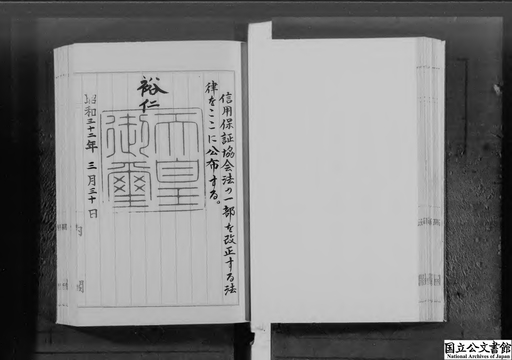 信用保証協会法の一部を改正する法
律をここに公布する。
裕仁
天皇
御璽
昭和三十二年三月三十日
国立公文書館
National Archives of Japan